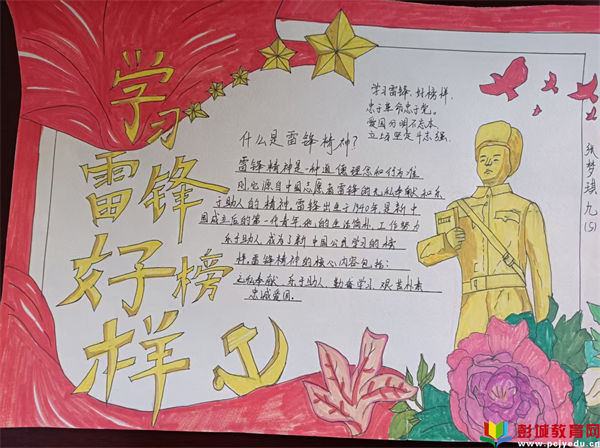 学习
雷锋
好榜
样
学习雷锋，好榜样，
忠于革命忠于党。
爱国分明不忘本
立场坚定斗志强。
什么是雷锋精神？
雷锋精神是一种道德理念和行为准
则，它源自中国志愿者雷锋的无私奉献和乐
于助人的精神，雷锋出生于1940年，是新中
国成立后的第一代青年，他的生活简朴，工作努力
乐于助人，成为了新中国公共学习的榜
样，雷锋精神的核心内容包括：
无私奉献 乐于助人 勤奋学习 艰苦朴素
忠诚爱国.
张梦琪 九(5)
彭城教育网
www.pcjyedu.cn